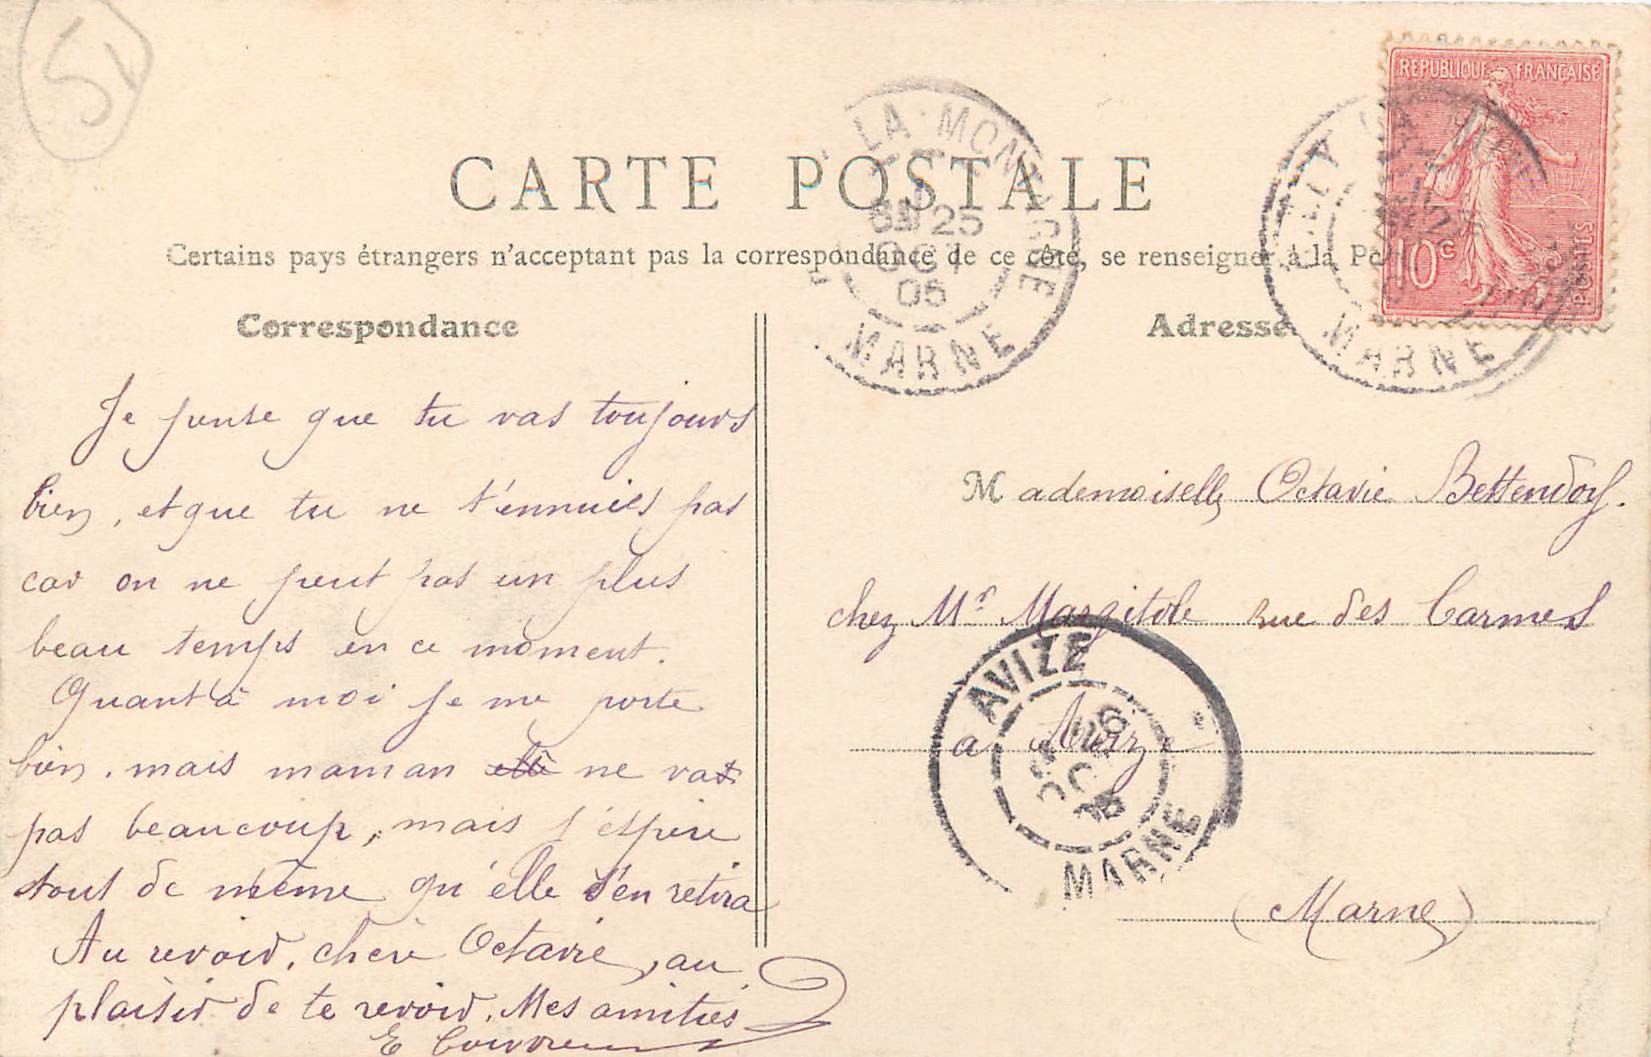 51
CARTE POSTALE
Certains pays étrangers n'acceptant pas la correspondance de ce côté, se renseigner à la
Correspondance
Je pense que tu vas toujours
bien, et que tu ne t'ennuies pas
car on ne peut pas un plus
beau temps en ce moment.
Quant à moi je me porte
bien. mais maman ne va
pas beaucoup, mais j'espère
tout de même qu'elle s'en retira
Au revoir, chère Octavie, au
plaisir de te revoir. Mes amitiés
E
Adresse
Mademoiselle Octavie Bettendorf.
chez Mr Margitole rue des Carmes
a Avize
(Marne)
REPUBLIQUE FRANÇAISE
10c
POSTES
LA MONTAGNE
25
OCT
05
MARNE
MARNE
AVIZE
OCT
05
MARNE